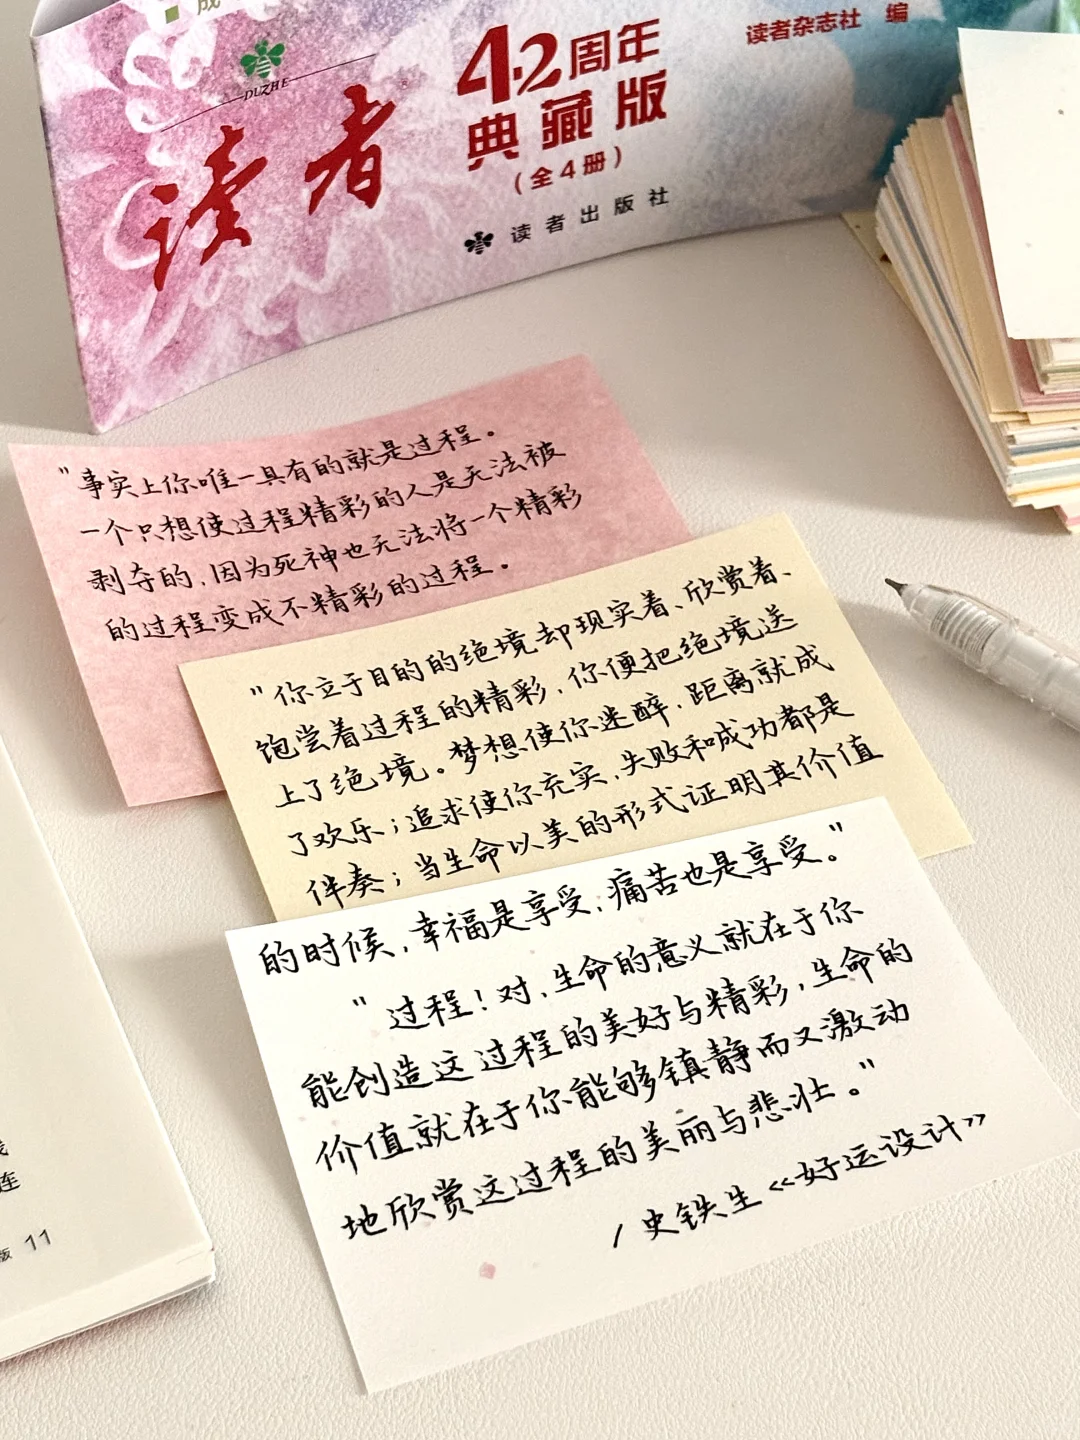 成
DUZHE
读者
42周年
典藏版
(全4册)
读者出版社
读者杂志社 编
"事实上你唯一具有的就是过程。
一个只想使过程精彩的人是无法被
剥夺的,因为死神也无法将一个精彩
的过程变成不精彩的过程。
"你立于目的的绝境却现实着、欣赏着、
饱尝着过程的精彩,你便把绝境送
上了绝境。梦想使你迷醉,距离就成
了欢乐;追求使你充实,失败和成功都是
伴奏;当生命以美的形式证明其价值
的时候,幸福是享受,痛苦也是享受。"
"过程!对,生命的意义就在于你
能创造这过程的美好与精彩,生命的
价值就在于你能够镇静而又激动
地欣赏这过程的美丽与悲壮。"
/史铁生《好运设计》
连
版 11